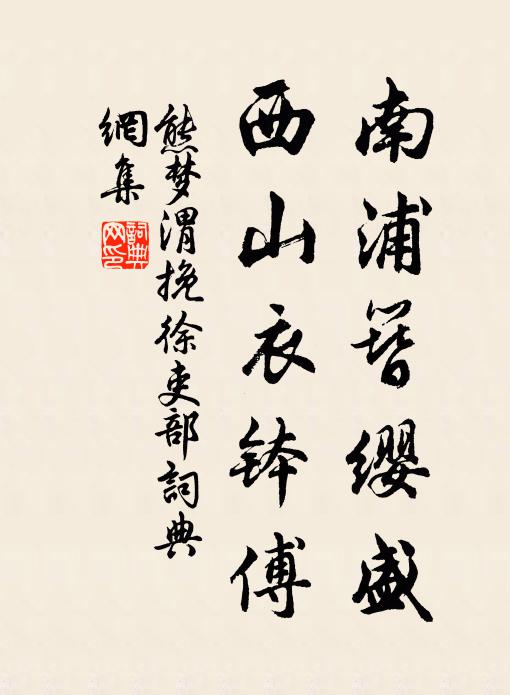 南浦簪缨盛
西山衣钵傅
熊梦渭挽徐吏部詞典
網集
詞典
网印